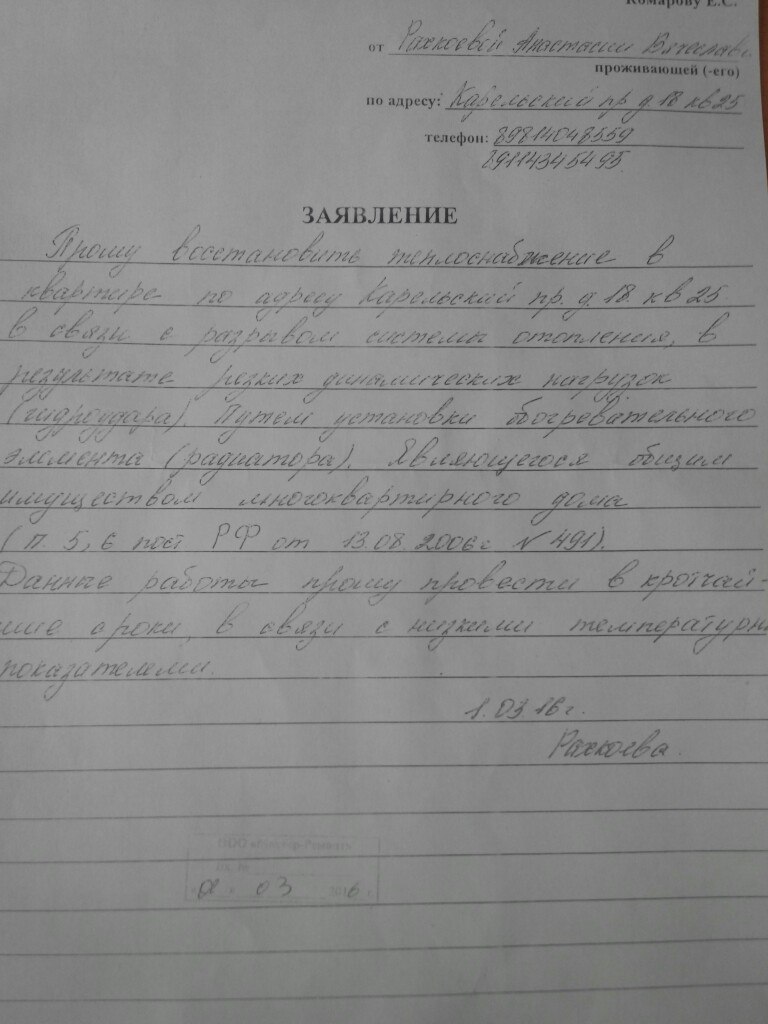 Комарову Е.С.
от Рахкоевой Анастасии Вячеслав
проживающей (-его)
по адресу: Карельский пр д.18 кв 25
телефон: 89814048559
89114345495
ЗАЯВЛЕНИЕ
Прошу восстановить теплоснабжение в
квартире по адресу Карельский пр. д. 18. кв 25
в связи с разрывом системы отопления, в
результате резких динамических нагрузок
(гидроудара). Путем установки обогревательного
элемента (радиатора). Являющегося общим
имуществом многоквартирного дома
( п. 5, 6 пост РФ от 13.08.2006г N 491).
Данные работы прошу провести в кротчай-
шие сроки, в связи с низкими температурны
показателями.
1.03.16 г.
Рахкоева.
03 2016 г.